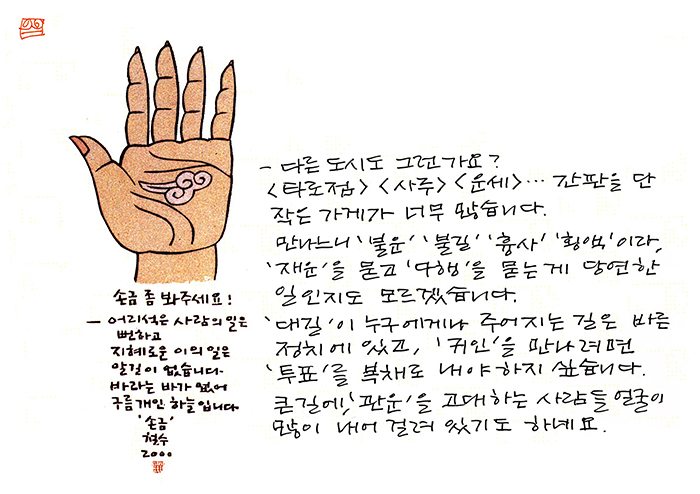 손금 좀 봐주세요!
— 어리석은 사람의 일은
뻔하고
지혜로운 이의 일은
알길이 없습니다.
바라는 바가 없어
구름개인 하늘입니다.
'손금'
철수
2000
– 다른 도시도 그런가요?
<타로점> <사주> <운세>… 간판을 단
작은 가게가 너무 많습니다.
만나느니 '불운' '불길' '흉사' '횡액'이라,
'재운'을 묻고 '다행'을 묻는게 당연한
일인지도 모르겠습니다.
'대길'이 누구에게나 주어지는 길은 바른
정치에 있고, '귀인'을 만나려면
'투표'를 복채로 내야 하지 싶습니다.
큰길에, '판운'을 고대하는 사람들 얼굴이
많이 내어 걸려 있기도 하네요.